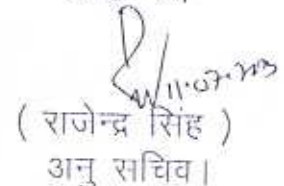 11.07.2023
( राजेन्द्र सिंह )
अनु सचिव।